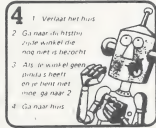 4 1 Verlaat het huis
2 Ga naar dichtstbij
zijnde winkel die
nog niet is bezocht
3 Als de winkel geen
pinda's heeft
en je bent niet
moe ga naar 2
4 Ga naar huis